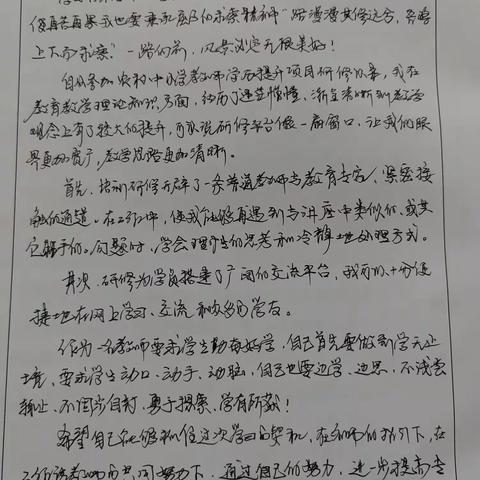 使再苦再累我也要秉承屈原的求索精神"路漫漫其修远兮,吾将
上下而求索"一路向前,风景必定无限美好!
自从参加农村中小学教师学历提升项目研修以来,我在
教育教学理论知识方面,经历了迷茫懵懂、渐至清晰到教学
观念上有了较大的提升,可以说研修平台像一扇窗口,让我们眼
界更加宽广,教学思路更加清晰。
首先,培训研修开辟了一条普通教师与教育专家、紧密接
触的通道。在工作中,使我能够再遇到与讲座中类似的、或其
它棘手的问题时,学会理性的思考和冷静地处理方式。
其次,研修为学员搭建了广阔的交流平台,我可以十分便
捷地在网上学习、交流和众多的学友。
作为一名教师要求学生勤奋好学,自己首先要做到学无止
境,要求学生动口、动手、动脑,自己也要边学、边思,不浅尝
辄止、不固步自封、勇于探索、学有所获!
希望自己能够抓住这次学习的契机,在教师的指引下,在
同努力下,通过自己的努力,进一步提高专